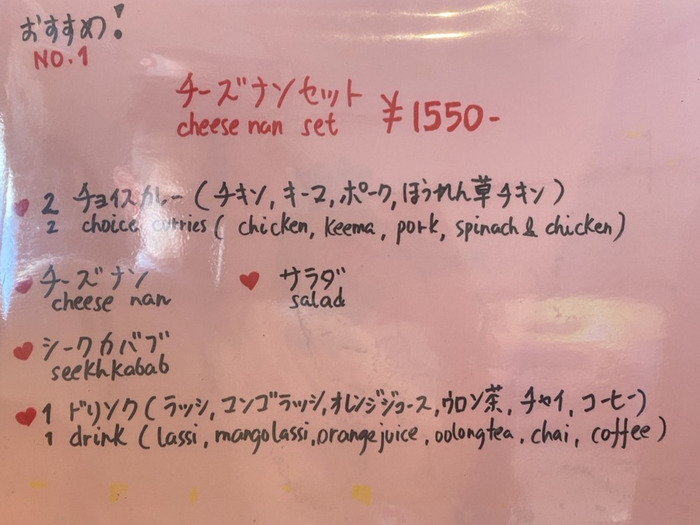 おすすめ!
NO.1
チーズナンセット ¥1550-
cheese nan set
2 チョイスカレー(チキン,キーマ,ポーク,ほうれん草チキン)
2 choice curries ( chicken, keema, pork, spinach & chicken)
チーズナン サラダ
cheese nan salad
シークカバブ
seekhkabab
1 ドリンク(ラッシ,コンゴラッシ,オレンジジュース,ウロン茶,チャイ,コーヒー)
1 drink (lassi, mangolassi, orangejuice, oolongtea, chai, coffee)